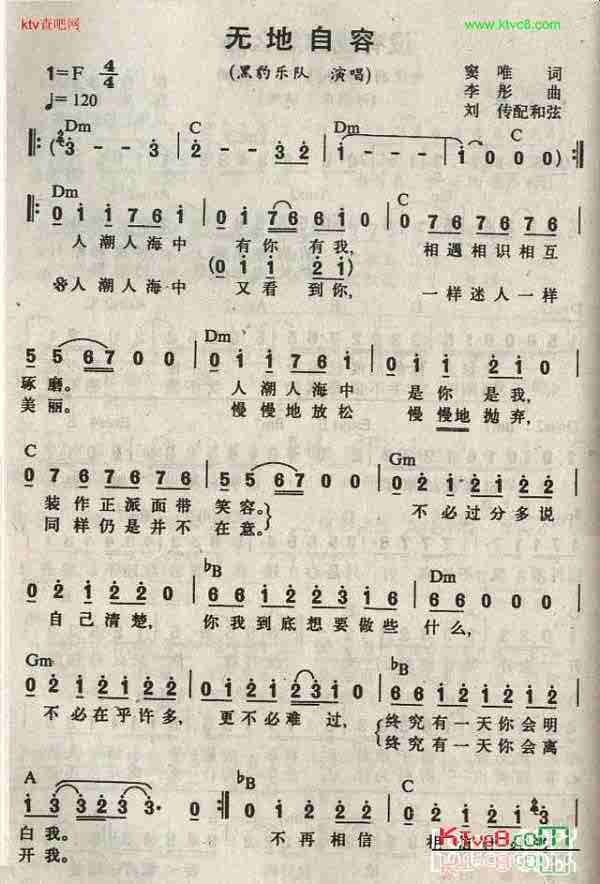 ktv查吧网
www.ktvc8.com
无地自容
(黑豹乐队 演唱)
1=F 4/4
♩=120
窦唯 词
李彤 曲
刘传 配和弦
Dm C Dm C
(3 - - 3 2 - - 3 2 1 - - - 1 0 0 0)
Dm C
0 1 1 7 6 1 0 1 1 7 6 6 1 0 0 7 6 7 6 7 6
人潮人海中 有你 有我, 相遇相识相互
(0 1 1 2 1)
人潮人海中 又看 到你, 一样迷人一样
Dm
5 5 6 7 0 0 0 1 1 7 6 1 0 1 1 2 1 0
琢磨。 人潮人海中 是你 是我,
美丽。 慢慢地放松 慢慢地 抛弃,
C Gm
0 7 6 7 6 7 6 5 5 6 7 0 0 0 2 1 2 1 2
装作正派面带 笑容。 不必过分多说
同样仍是并不 在意。
♭B Dm
0 2 1 2 2 6 6 1 2 2 3 1 6 6 6 0 0 0
自己清楚, 你我到底想要做些 什么,
Gm ♭B
0 2 1 2 1 2 2 0 2 1 2 1 2 3 1 0 6 6 1 2 1 2 1 2
不必在乎许多, 更不必难 过, 终究有一天你会明
终究有一天你会离
A ♭B C
1 3 3 2 3 3 0 0 1 2 2 2
白我。 不再相信
开我。
Ktvc8.com